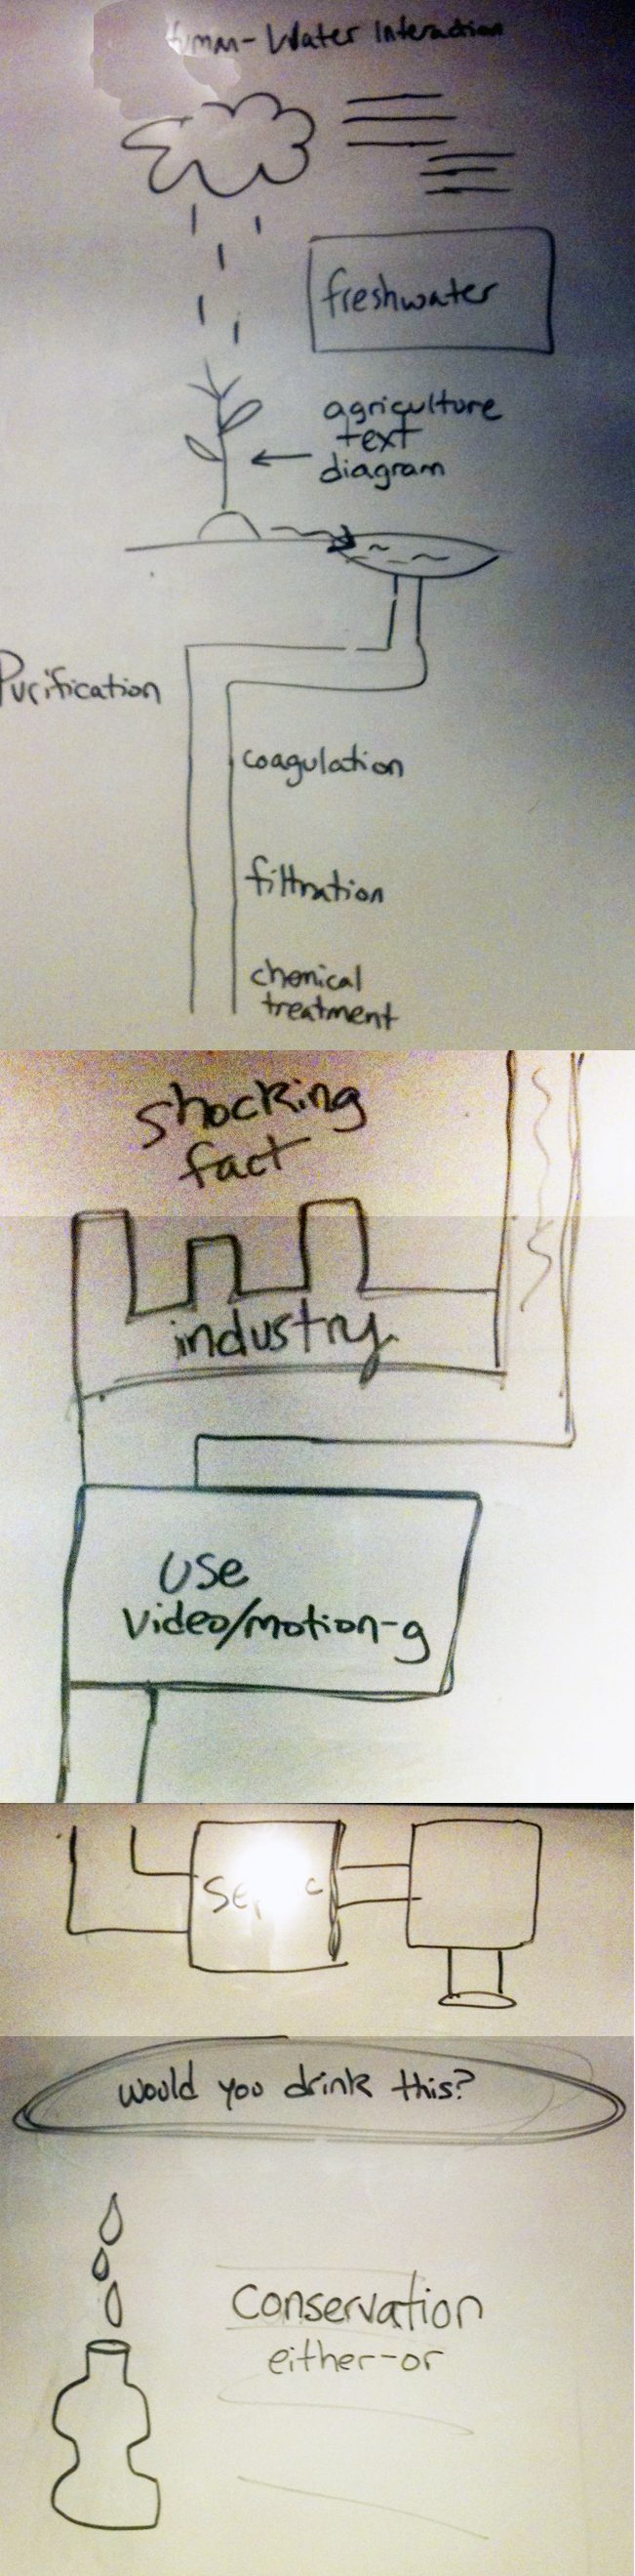 Human-Water Interaction
freshwater
agriculture
text
diagram
Purification
coagulation
filtration
chemical
treatment
shocking
fact
industry
Use
Video/motion-g
would you drink this?
Conservation
either-or